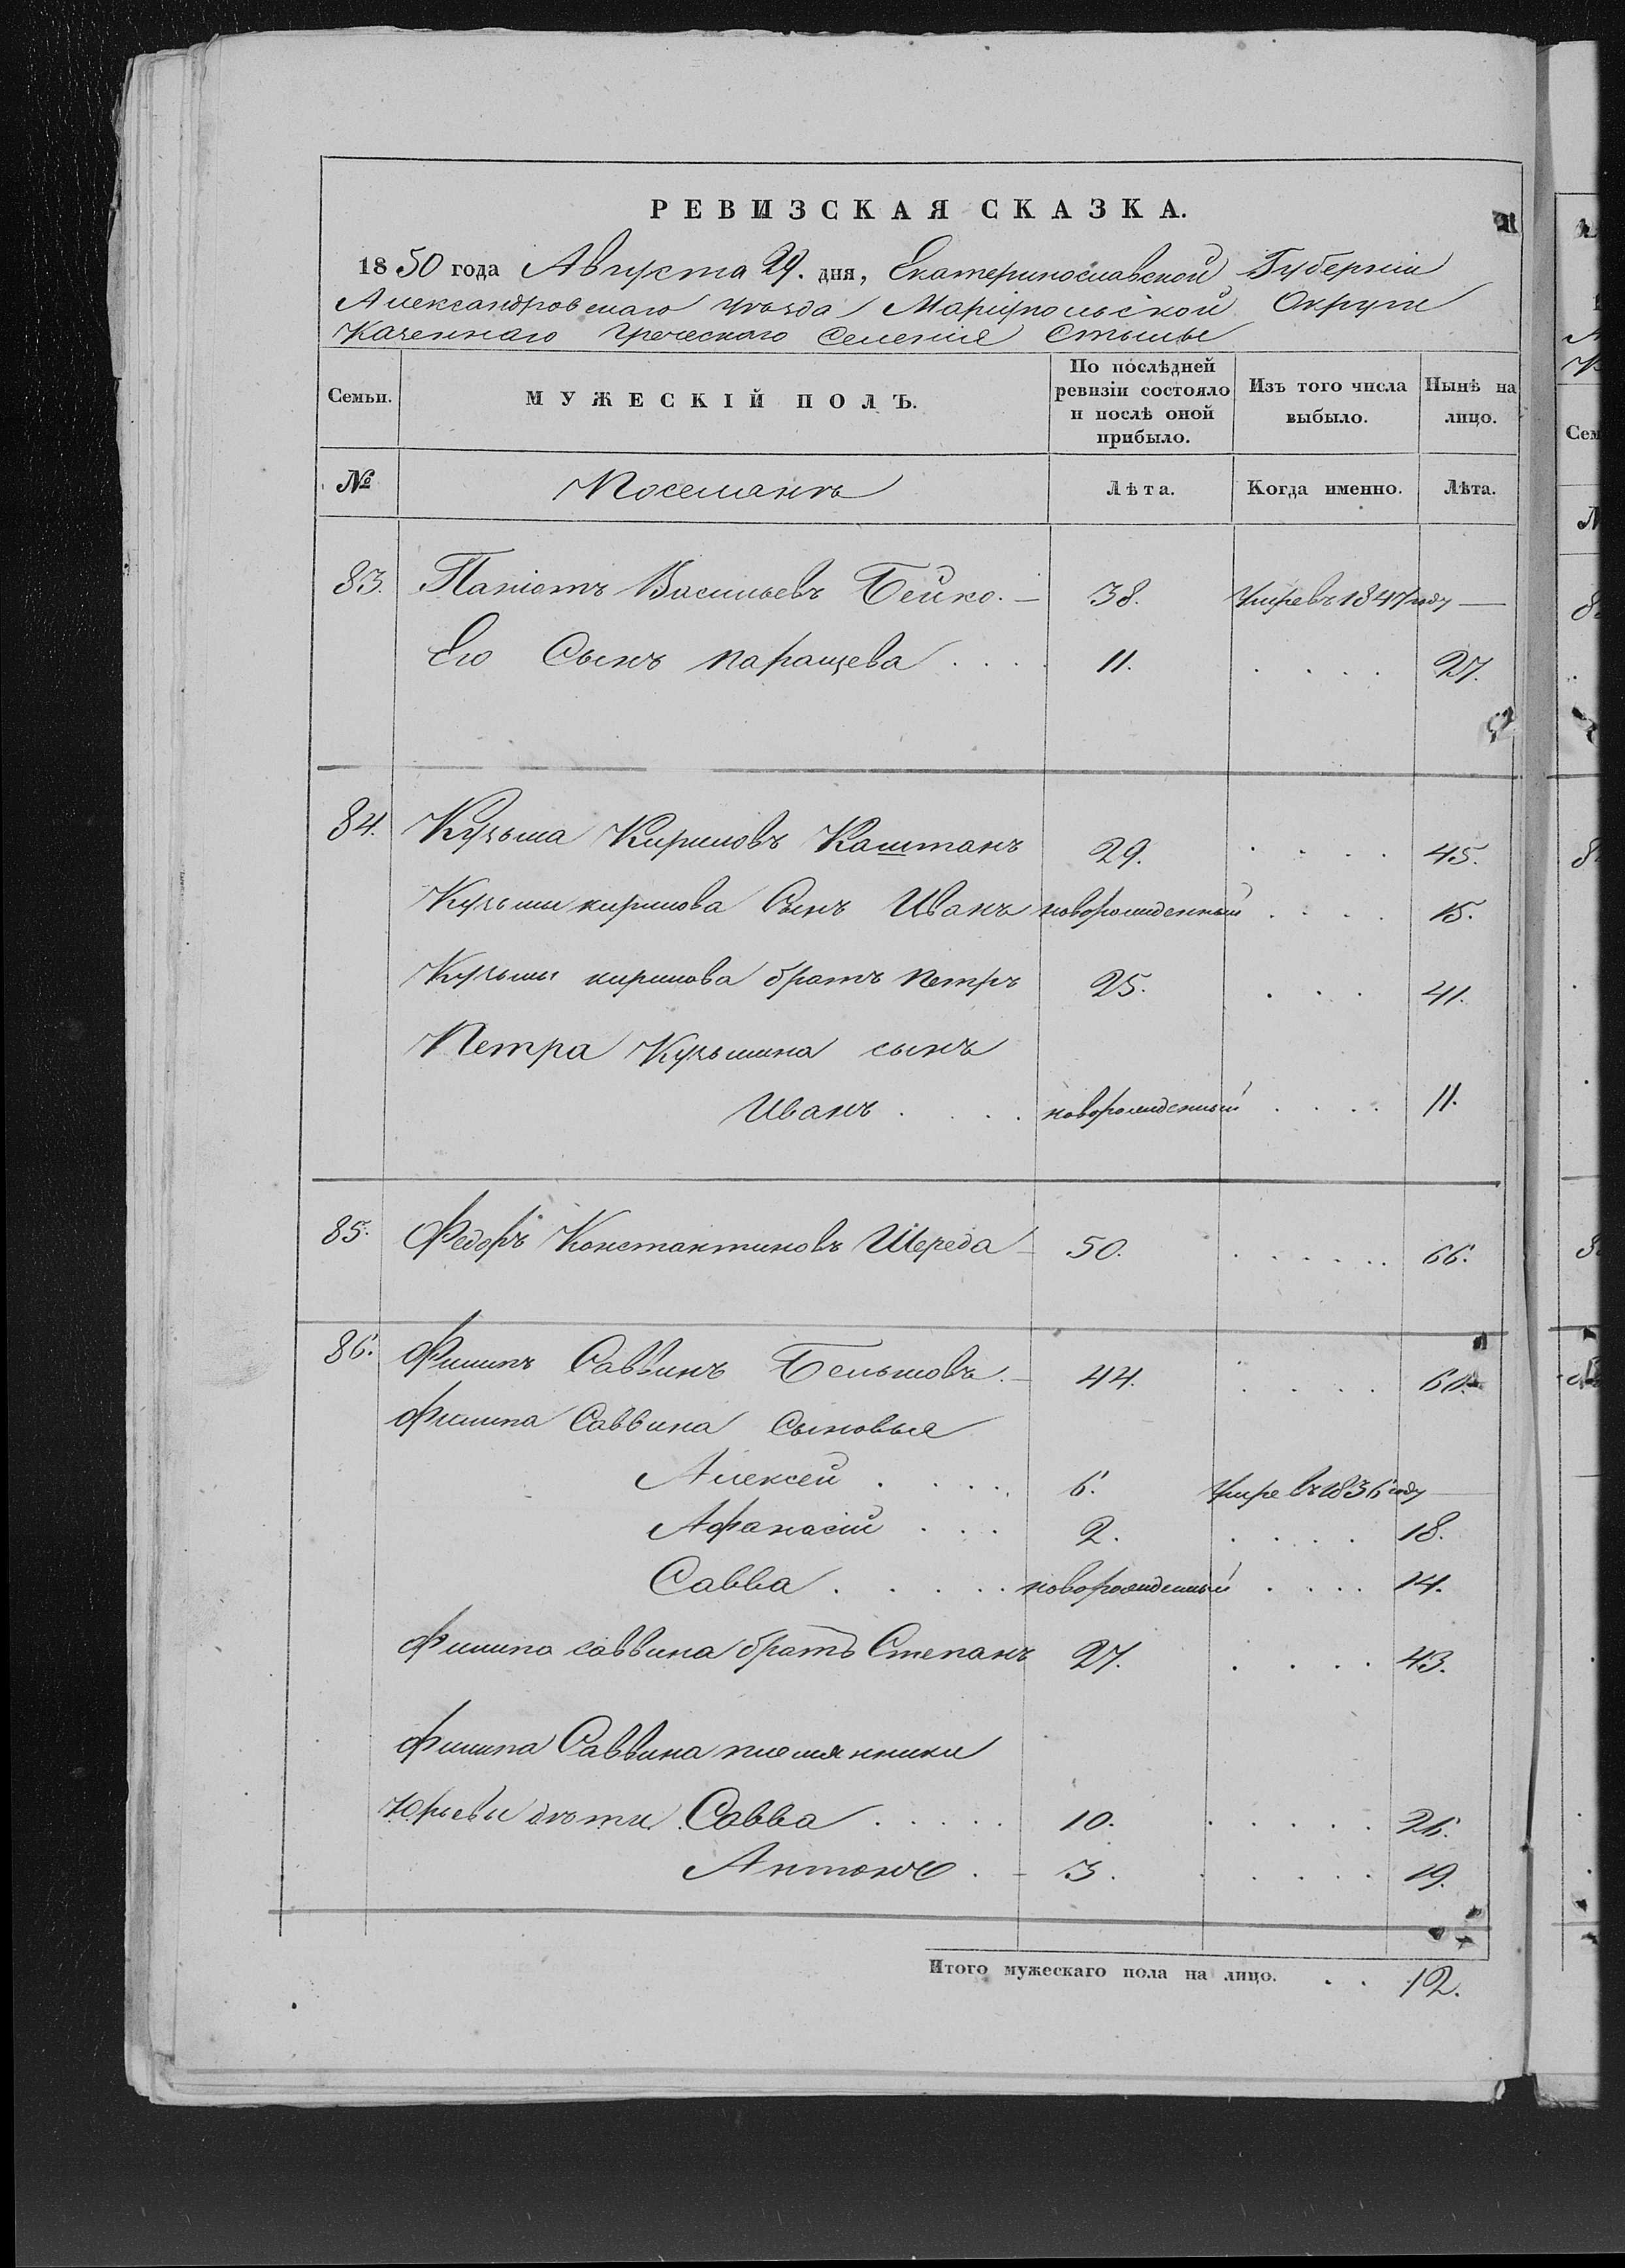 РЕВИЗСКАЯ СКАЗКА.
1850 года Августа 29. дня, Екатеринославской Губернии
Александровскаго уѣзда Маріупольской Округи
Казеннаго Греческаго Селенія Стылы
Семьи. МУЖЕСКІЙ ПОЛЪ. По послѣдней ревизіи состояло и послѣ оной прибыло. Изъ того числа выбыло. Нынѣ на лицо.
№ Поселянъ Лѣта. Когда именно. Лѣта.
83. Паніотъ Васильевъ Бейко. 38. Умре въ 1847 году —
Его Сынъ паращева . . . . 11. . . . . 27.
84. Кузьма Кириловъ Каштанъ 29. . . . . 45.
Кузьмы кирилова Сынъ Иванъ новорожденный . . . . 15.
Кузьмы кирилова братъ петръ 25. . . . 41.
Петра Кузьмина сынъ
Иванъ . . . . новорожденный . . . . 11.
85. Федоръ Константиновъ Шереда 50. . . . . . . 66.
86. Филипъ Саввинъ Бельмовъ. 44. . . . . 60.
Филипа Саввина Сыновья
Алексей . . . . 6. Умре въ 1836 году —
Афанасій . . . 2. . . . . 18.
Савва . . . . . новорожденный . . . . 14.
Филипа саввина братъ Степанъ 27. . . . . 43.
Филипа Саввина племянники
Юрьевы дѣти Савва . . . . . 10. . . . . . 26.
Антонъ . 3. . . . . . 19.
Итого мужескаго пола на лицо. . . 12.